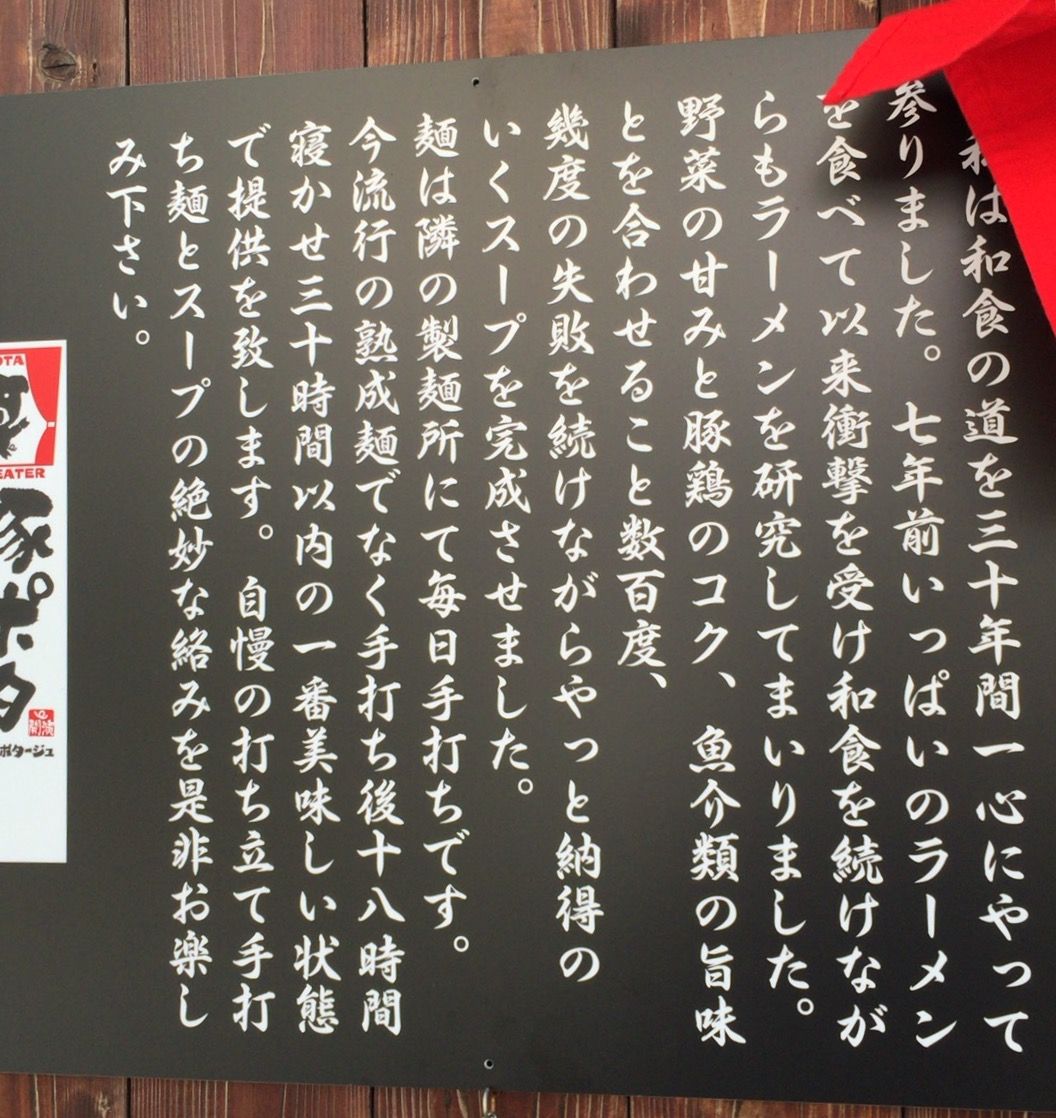 私は和食の道を三十年間一心にやって
参りました。七年前いっぱいのラーメン
を食べて以来衝撃を受け和食を続けなが
らもラーメンを研究してまいりました。
野菜の甘みと豚鶏のコク、魚介類の旨味
とを合わせること数百度、
幾度の失敗を続けながらやっと納得の
いくスープを完成させました。
麺は隣の製麺所にて毎日手打ちです。
今流行の熟成麺でなく手打ち後十八時間
寝かせ三十時間以内の一番美味しい状態
で提供を致します。自慢の打ち立て手打
ち麺とスープの絶妙な絡みを是非お楽し
み下さい。
OTA
EATER
豚ポタ
ポタージュ